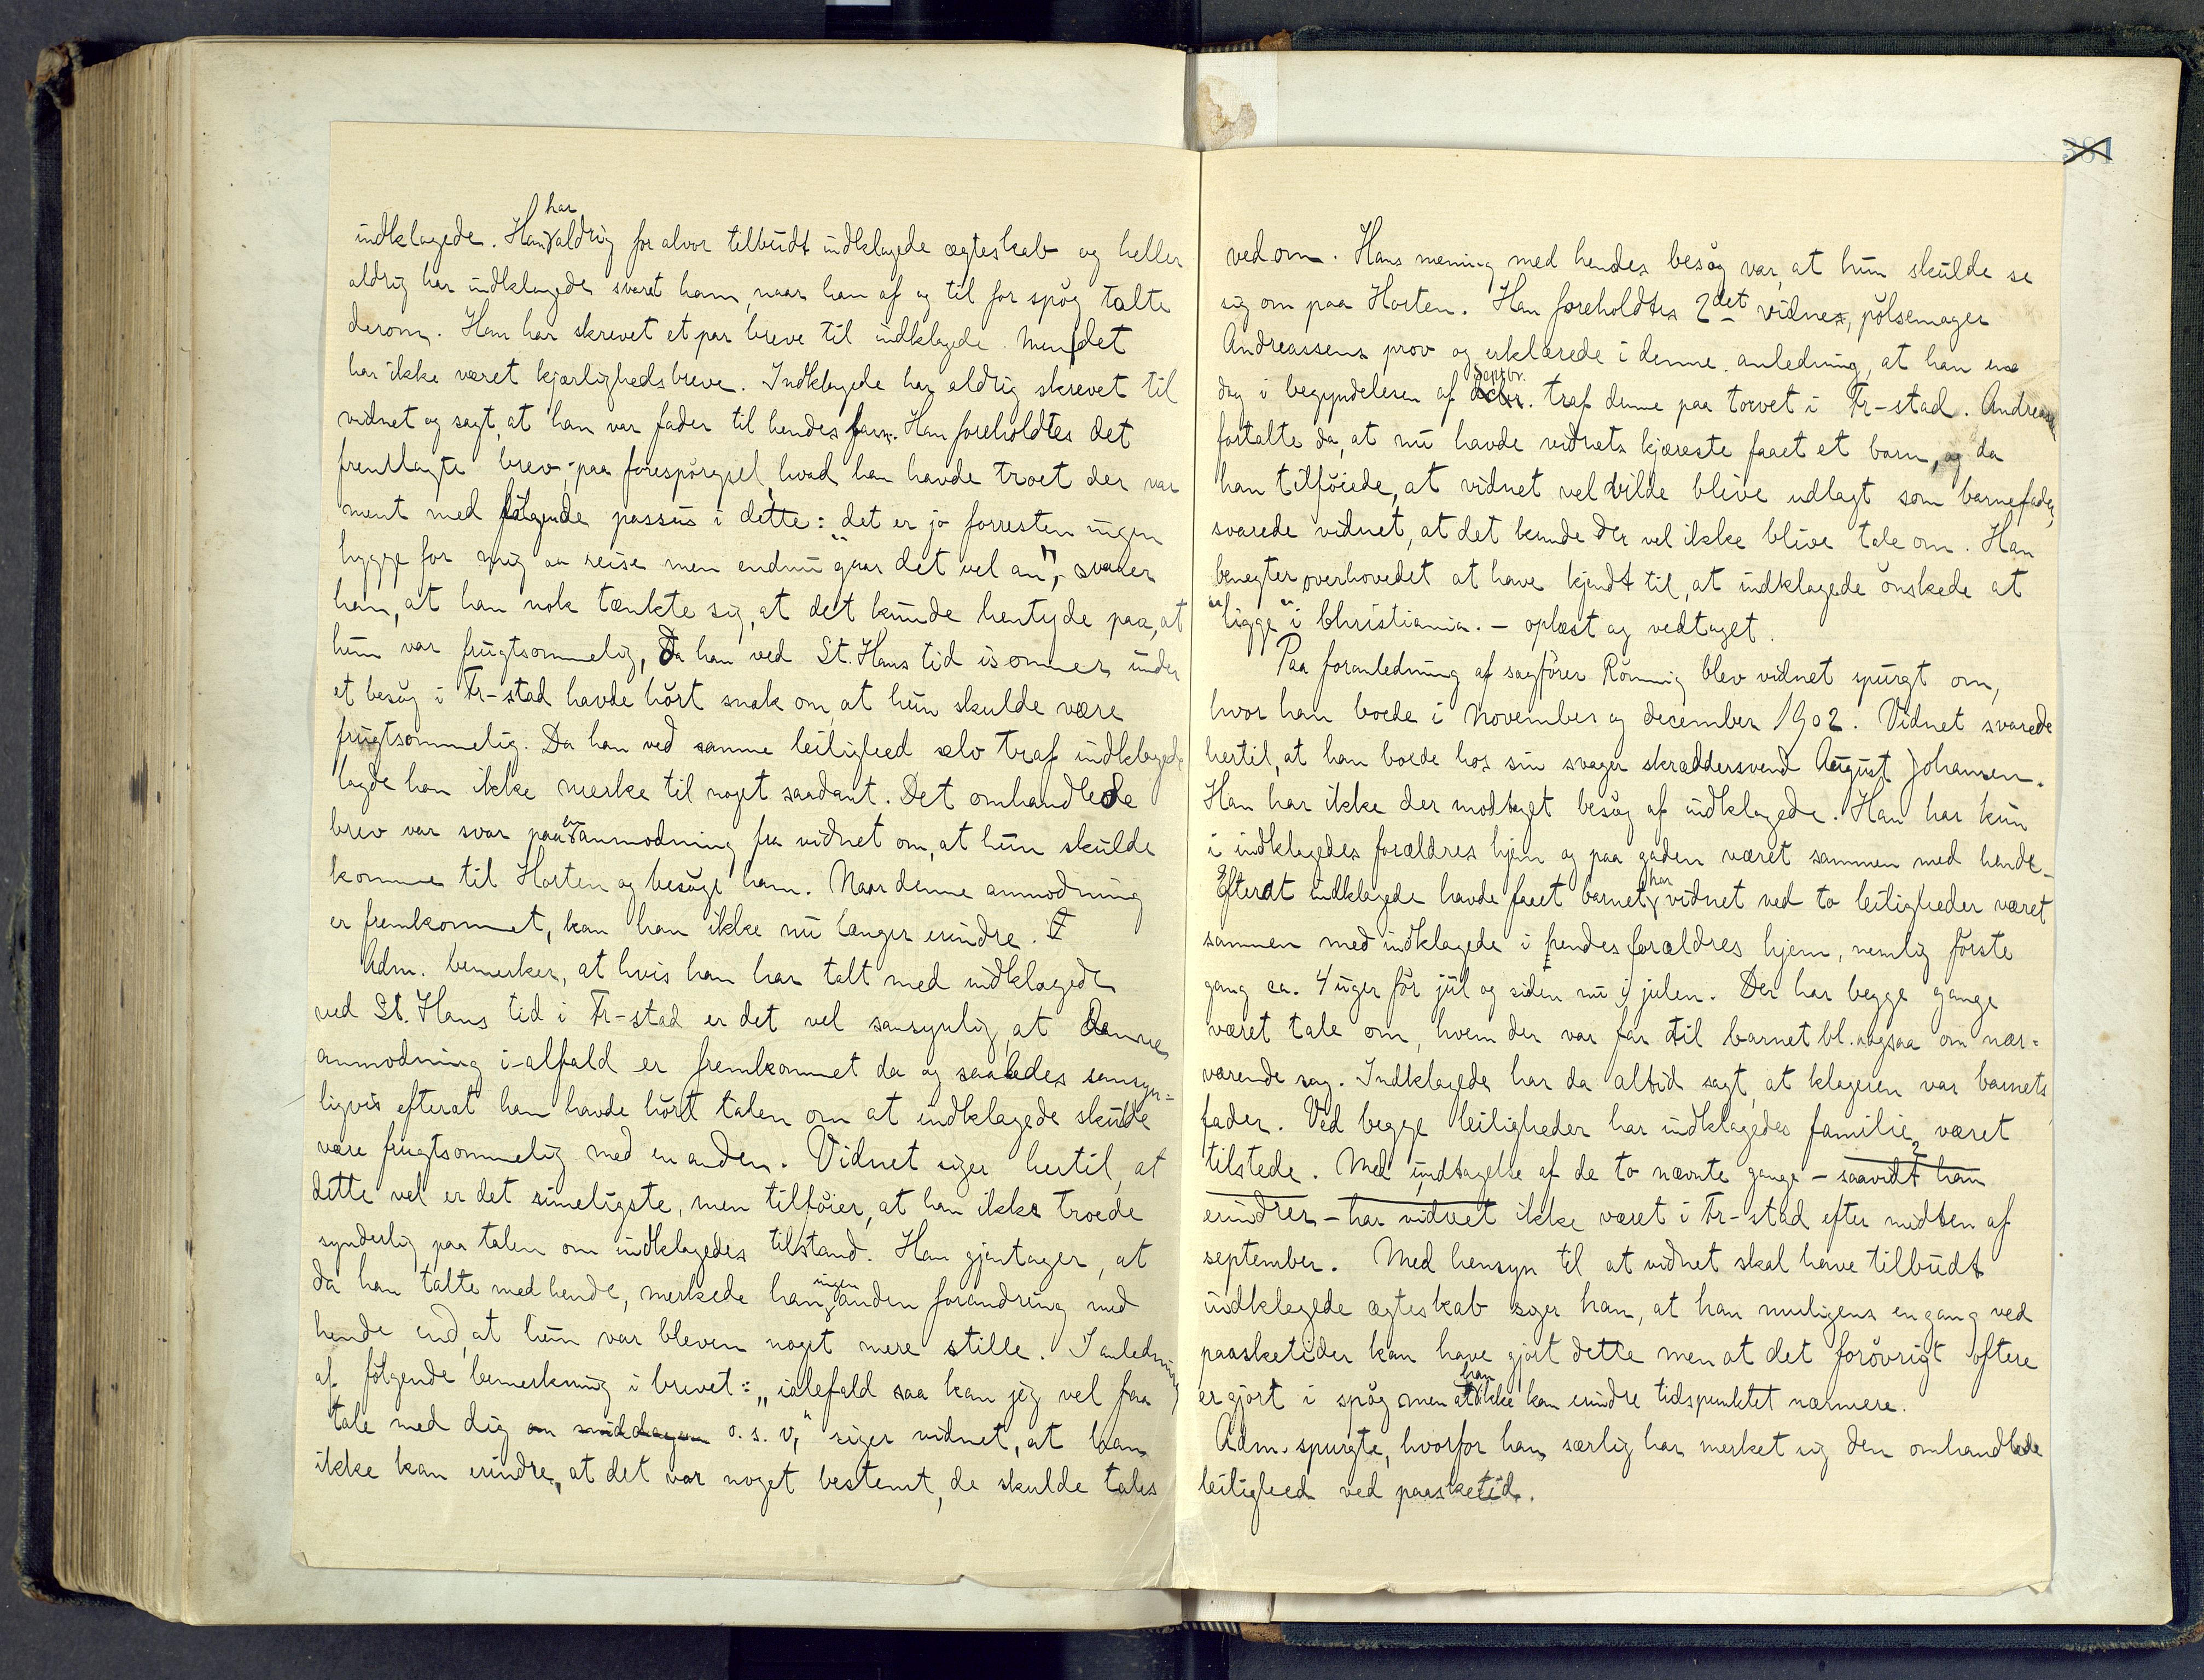 indklagede. Han har aldrig for alvor tilbudt indklagede ægteskab og heller
aldrig har indklagede svaret ham, naar han af og til for spög talte
derom. Han har skrevet et par breve til indklagede. Men det
har ikke været kjærlighedsbreve. Indklagede har aldrig skrevet til
vidnet og sagt, at han var fader til hendes barn. Han foreholdtes det
fremlagte brev; paa forespörgsel, hvad han havde troet der var
ment med fölgende passus i dette: det er jo forresten ingen
hygge for mig aa reise men endnu gaar det vel an", svarer
han, at han nok tænkte sig, at det kunde hentyde paa, at
hun var frugtsommelig, da han ved St. Hans tid isommer under
et besög i Fr-stad havde hört snak om, at hun skulde være
frugtsommelig. Da han ved samme leilighed selv traf indklagede
lagde han ikke merke til noget saadant. Det omhandlede
brev var svar paa en anmodning fra vidnet om, at hun skulde
komme til Horten og besöge ham. Naar denne anmodning
er fremkommet, kan han ikke nu længer erindre.
Adm. bemerker, at hvis han har talt med indklagede
ved St. Hans tid i Fr-stad er det vel sansynlig, at denne
anmodning i-alfald er fremkommet da og saaledes sansyn=
ligvis efterat han havde hört talen om at indklagede skulde
være frugtsommelig med en anden. Vidnet siger hertil, at
dette vel er det rimeligste, men tilföier, at han ikke troede
synderlig paa talen om indklagedes tilstand. Han gjentager, at
da han talte med hende, merkede han ingen anden forandring med
hende end, at hun var bleven noget mere stille. I anledning
af fölgende bemerkning i brevet: "ialefald saa kan jeg vel faa
tale med dig om middagen o.s.v," siger vidnet, at han
ikke kan erindre, at det var noget bestemt, de skulde tales
381
ved om. Hans mening med hendes besög var, at hun skulde se
sig om paa Horten. Han foreholdtes 2det vidnes, pölsemager
Andreassens prov og erklærede i denne anledning, at han en
dag i begyndelsen af septbr. traf denne paa torvet i Fr-stad. Andreassen
fortalte da, at nu havde vidnets kjæreste faaet et barn, og da
han tilföiede, at vidnet vel vilde blive udlagt som barnefader,
svarede vidnet, at det kunde der vel ikke blive tale om. Han
benegter overhovedet at have kjendt til, at indklagede önskede at
"ligge" i Christiania. - oplæst og vedtaget.
Paa foranledning af sagförer Rönnig blev vidnet spurgt om,
hvor han boede i November og december 1902. Vidnet svarede
hertil, at han boede hos sin svager skræddersvend August Johansen.
Han har ikke der modtaget besög af indklagede. Han har kun
i indklagedes forældres hjem og paa gaden været sammen med hende.
Efterat indklagede havde faaet barnet, har vidnet ved to leiligheder været
sammen med indklagede i hendes forældres hjem, nemlig förste
gang ca. 4 uger för jul og siden nu i julen. Der har begge gange
været tale om, hvem der var far til barnet bl. aagsaa om nær=
værende sag. Indklagede har da altid sagt, at klageren var barnets
fader. Ved begge leiligheder har indklagedes familie været
tilstede. Med undtagelse af de to nævnte gange - saavidt han
erindrer - har vidnet ikke været i Fr-stad efter midten af
september. Med hensyn til at vidnet skal have tilbudt
indklagede ægteskab siger han, at han muligens engang ved
paasketider kan have gjort dette men at det forövrigt oftere
er gjort i spög men at han ikke kan erindre tidspunktet nærmere.
Adm. spurgte, hvorfor han særlig har merket sig den omhandlede
leilighed ved paasketid.